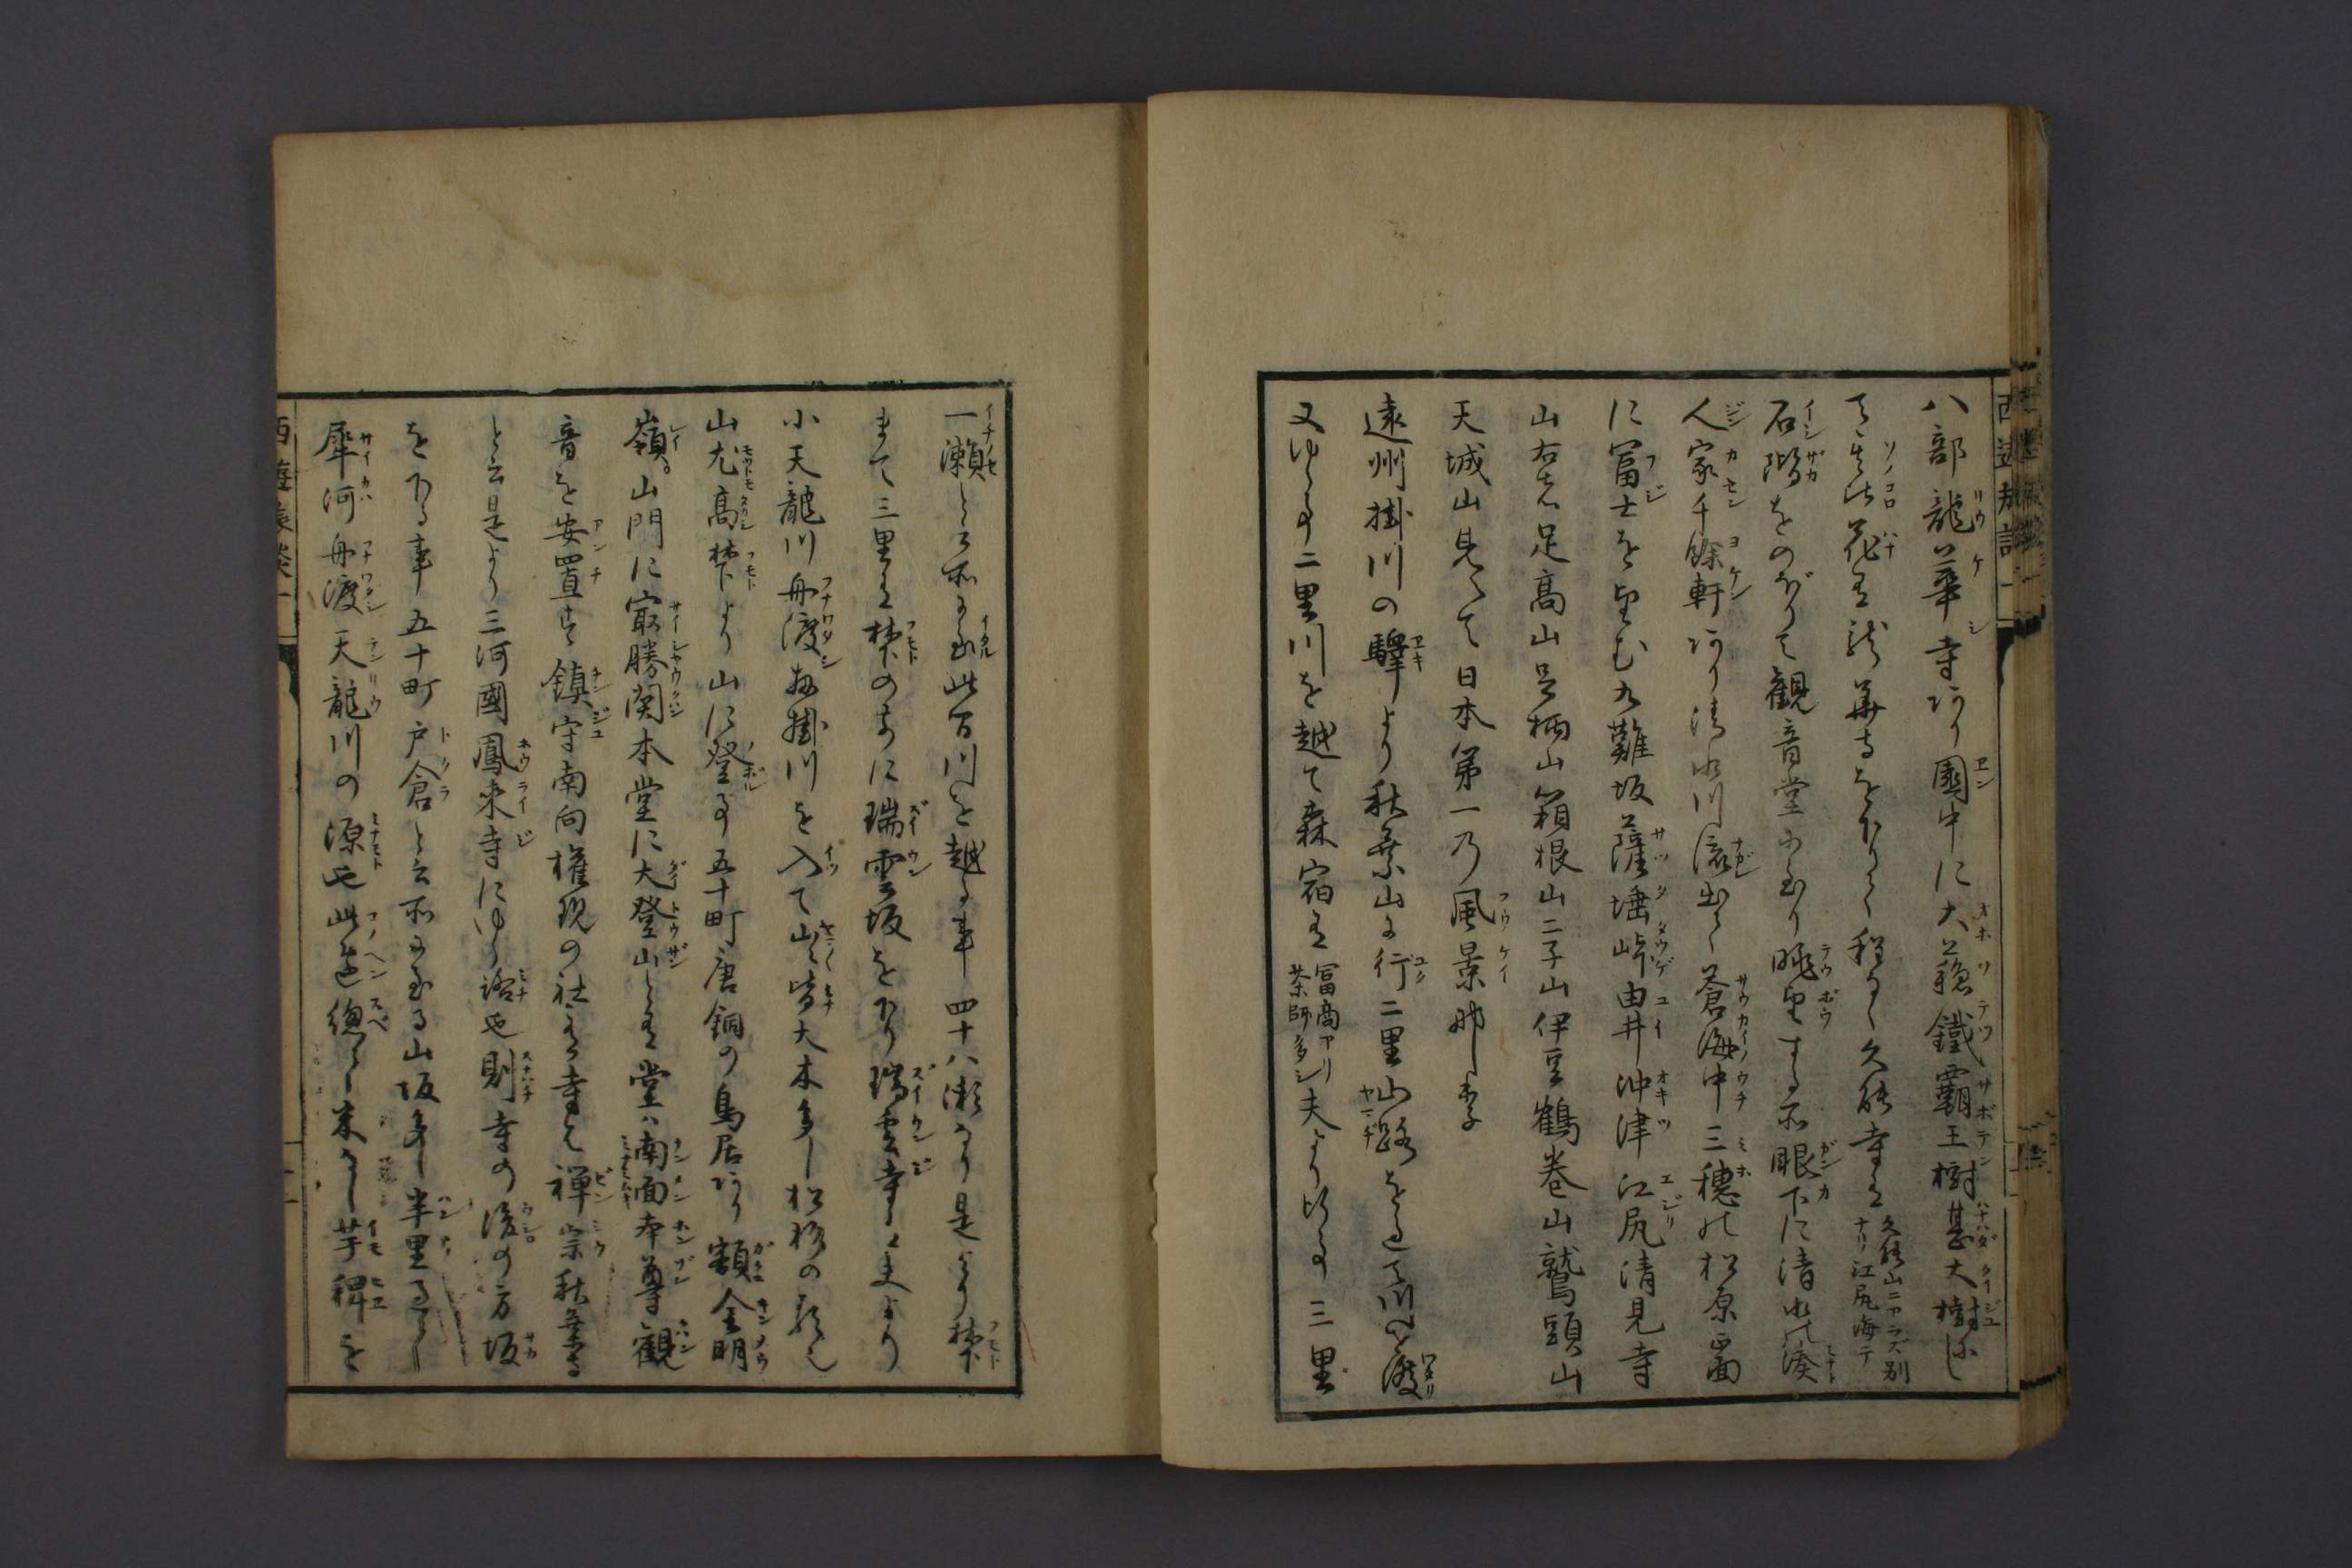 八部龍華寺アリ園中に大蘓鐵覇王樹甚大樹にし
て其比花を龍華寺を下りて程なく久能寺あり久能山ニアラズ別ナリ江尻海テ
石階をのぼりて観音堂に至り眺望する所眼下に清水の湊
人家千餘軒アリ清水川流出て蒼海中三穂の松原正面
に冨士を望む九難坂薩埵峠由井沖津江尻清見寺
山右は足高山足柄山箱根山二子山伊豆鶴巻山鷲頭山
天城山見へて日本第一乃風景
遠州掛川の驛より秋葉山に行二里山路を過て川を渡
又ゆく事二里川を越て森宿冨商アリ茶師多シ夫より行事三里
一瀬と云所に至此百川を越る事四十八瀬なり是より梺
まて三里梺の前に瑞雲坂を下り瑞雲寺夫より
小天龍川舟渡掛川を入て山々皆大木多し松杉の類也
山尤高梺より山に登る事五十町唐銅の鳥居アリ額金明
嶺山門に冣勝関本堂に大登山と堂ハ南面本尊観
音を安置す鎮守南向権現の社寺は禅宗秋葉寺
と云是より三河國鳳来寺にゆく路也則寺の後の方坂
を下る事五十町戸倉と云所に至る山坂多し半里
犀河舟渡天龍川の源也此邉總て米なし芋稗を